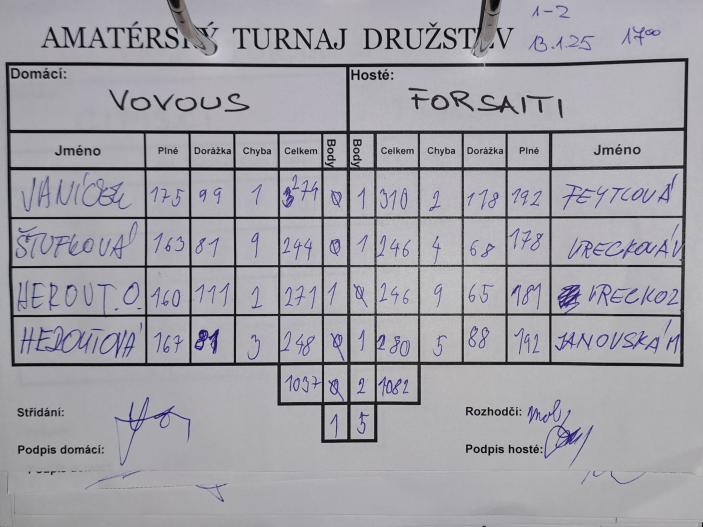 1-2
AMATÉRSKÝ TURNAJ DRUŽSTEV 13.1.25 17⁰⁰
Domácí: Hosté:
VOVOUS FORSAITI
Jméno Plné Dorážka Chyba Celkem Body Body Celkem Chyba Dorážka Plné Jméno
175 99 1 274 0 1 310 2 118 192 FEYTLOVÁ
ŠTUFKOVÁ 163 81 9 244 0 1 246 4 68 178 VRECKOVÁ V
HEROUT.O. 160 111 2 271 1 0 246 9 65 181 VRECKO Z
HEROUTOVÁ 167 81 3 248 0 1 280 5 88 192 JANOVSKÁ M
1037 0 2 1082
1 5
Střídání: Rozhodčí:
Podpis domácí: Podpis hosté: